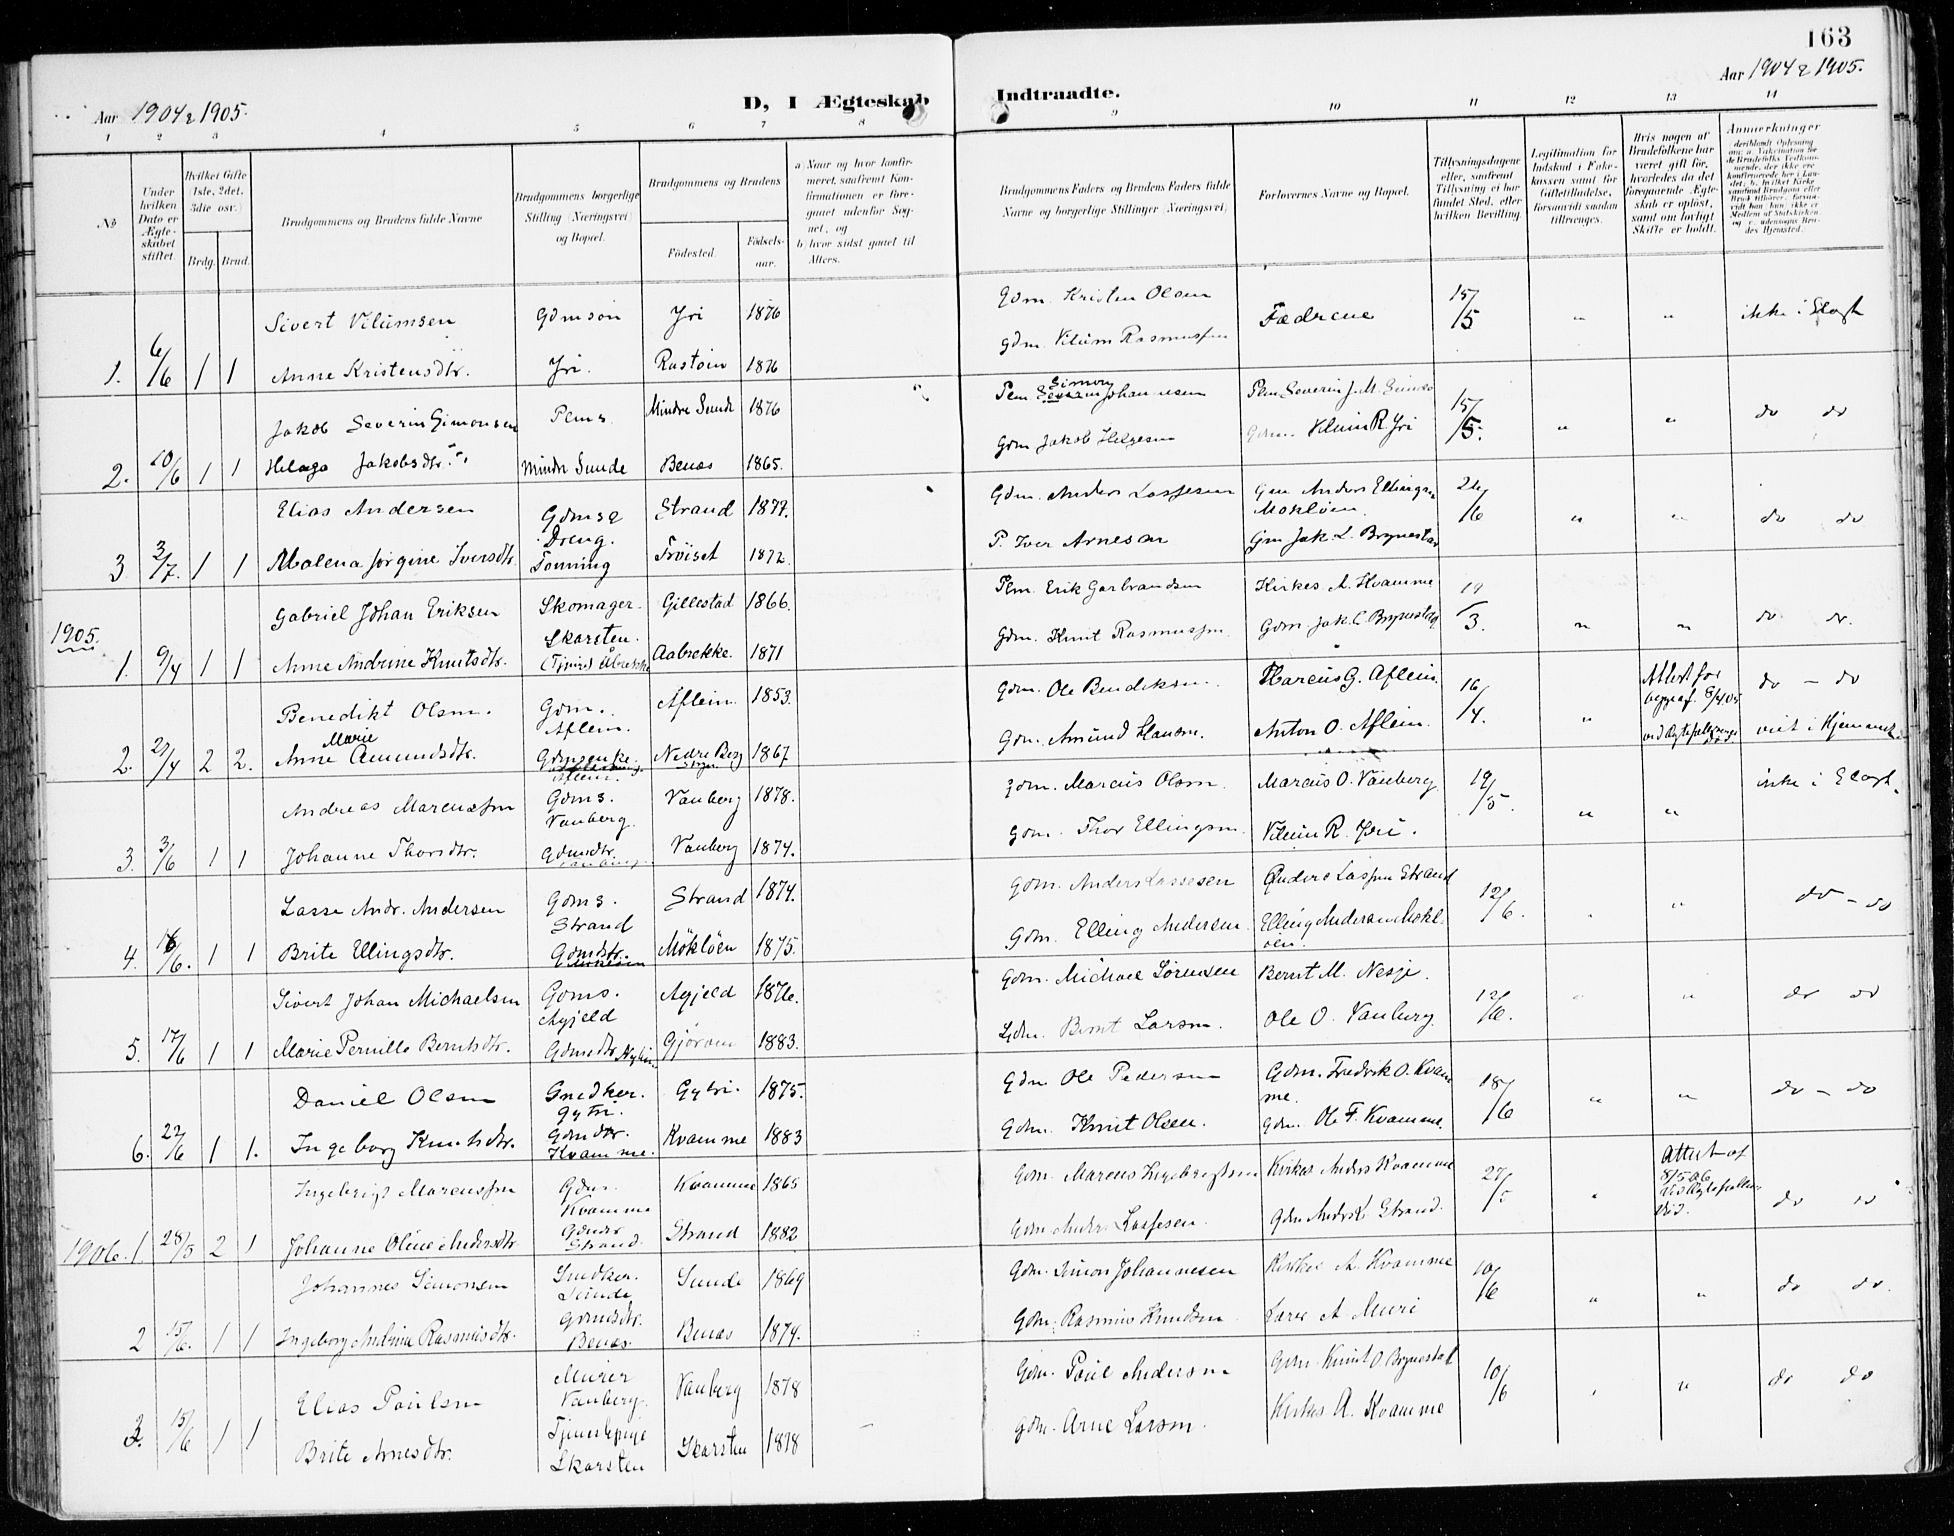 163
Aar 1904 & 1905.
D, I Ægteskab Indtraadte.
Aar 1904 & 1905.
1 2 3 4 5 6 7 8 9 10 11 12 13 14
No
Under hvilken Dato er Ægteskabet stiftet.
Hvilket Gifte (1ste, 2det, 3die osv.)
Brdg. Brud.
Brudgommens og Brudens fulde Navne
Brudgommens borgerlige Stilling (Næringsvei) og Bopæl.
Brudgommens og Brudens
Fødested.
Fødselsaar.
a) Naar og hvor konfirmeret, saafremt Konfirmationen er foregaaet udenfor Sognet, og
b) hvor sidst gaaet til Alters.
Brudgommens Faders og Brudens Faders fulde Navne og borgerlige Stillinger (Næringsvei)
Forlovernes Navne og Bopæl.
Tillysningsdagene eller, saafremt Tillysning ei har fundet Sted, efter hvilken Bevilling.
Legitimation for Indskud i Enkekassen samt for Giftetilladelse, forsaavidt saadan tiltrænges.
Hvis nogen af Brudefolkene har været gift før, hvorledes da det foregaaende Ægteskab er opløst, samt om lovligt Skifte er holdt.
Anmerkninger
Sivert Vilumsen Gdmsøn Yri 1876 Gdm. Kristen Olsen Fædrene 15/5 " " ikke i Slægt
1. 6/6 1 1 Anne Kristensdtr. Yri. Rustøin 1876 Gdm. Vilum Rasmussen
Jakob Severin Simonsen Plms Mindre Sunde 1876 Plm Simon Johannesen Plm Severin J. M. Sunde 15/5. " " do do
2. 10/6 1 1 Jakobsdtr. Mindre Sunde Benæs 1865. Gdm Jakob Helgesen Gdm. Vilum R. Yri
Elias Andersen Gdms & Strand 1879. Gdm. Anders Lassesen Gm Anders Ellingsen Mokløen. 26/6 " " do do
3 3/7. 1 1 Malena Jørgine Iversdtr. Dreng. Tonning Frøiset 1872. P. Iver Arnesen Gm Jak. L. Brynestad
Gabriel Johan Eriksen Skomager. Skarsten. Gillestad 1866. Plm. Erik Garbrandsen Kirkes. A. Kvamme 19/3. " " do do.
1905.
1. 9/4 1 1 Anne Andrine Knutsdtr. Aabrekke. 1871 Gdm. Knut Rasmussen Gdm Jak. L. Brynestad
Benedikt Olsen. Gdm. Aflein. Aflein. 1853. Gdm. Ole Bendiksen. Marcus G. Aflein. 16/4. " Attest for do - do
2. 29/4 2 2. Anne Marie Amundsdtr. Gdmsenke. Aflein. Nedre Berg 1867 Gdm. Amund Hansen. Anton O. Aflein. viet i Hjemmet.
Andreas Marcussen Gdms. Vanberg. Vanberg 1878. Gdm. Marcus Olsen. Marcus O. Vanberg 19/5. " " ikke i Slægt.
3. 3/6 1 1 Johanne Thorsdtr. Gdmsdtr. Vanberg 1874. Gdm. Thor Ellingsen. Vilum R. Yri.
Lasse Andr. Andersen Gdms. Strand Strand 1874. Gdm. Anders Lassesen Anders Lassen Strand 12/6. " do - do
4. 16/6. 1 1 Brite Ellingsdtr. Gdmsdtr. Mökløen 1875. Gdm. Elling Andersen Elling Andersen Mökløen.
Sivert Johan Michaelsen Gdms. Agjeld Agjeld 1876. Gdm. Michael Sørensen Bernt M. Nesje. 12/6. " " do do
5. 17/6 1 1 Marie Pernille Berntsdtr. Gdmsdtr. Gjørven 1883. Gdm. Bernt Larsen. Ole O. Vanberg.
Daniel Olsen Snedker. Gytri. Gytri. 1875. Gdm Ole Pedersen Gdm. Fredrik O. Kvamme. 18/6 " " do - do
6. 22/6 1 1. Ingeborg Knutsdtr. Gdmdtr. Kvamme. Kvamme 1883 Gdm. Knut Olsen. Gdm. Ole F. Kvamme.
Ingebrigt Marcussen Gdm. Kvamme Kvamme 1865 Gdm. Marcus Ingebrigtsen Kirkes Anders Kvamme 27/5 " Attest af 8/5 06 do do
1906. 1. 28/5 2 1 Johanne Oline Andersdtr. Gdmdtr Strand. Strand 1882 Gdm Anders Lassesen. Gdm Anders L. Strand.
Johannes Simonsen Snedker. Sunde Sunde 1869 Gdm. Simon Johannesen Kirkes A. Kvamme 10/6 " " do do.
2 15/6. 1 1 Ingeborg Andrine Rasmusdtr. Gdmsdtr. Benæs. Benæs 1874. Gdm. Rasmus Knudsen Lærer A. Muri
Elias Paulsen Murer Vanberg. Vanberg 1878 Gdm. Paul Andersen Gdm. Knut O. Brynestad 10/6 " " do do
3. 15/6 1 1 Brite Arnesdtr. Tjenestepige Skarsten Skarsten 1878 Gdm. Arne Larsen. Kirkes A. Kvamme